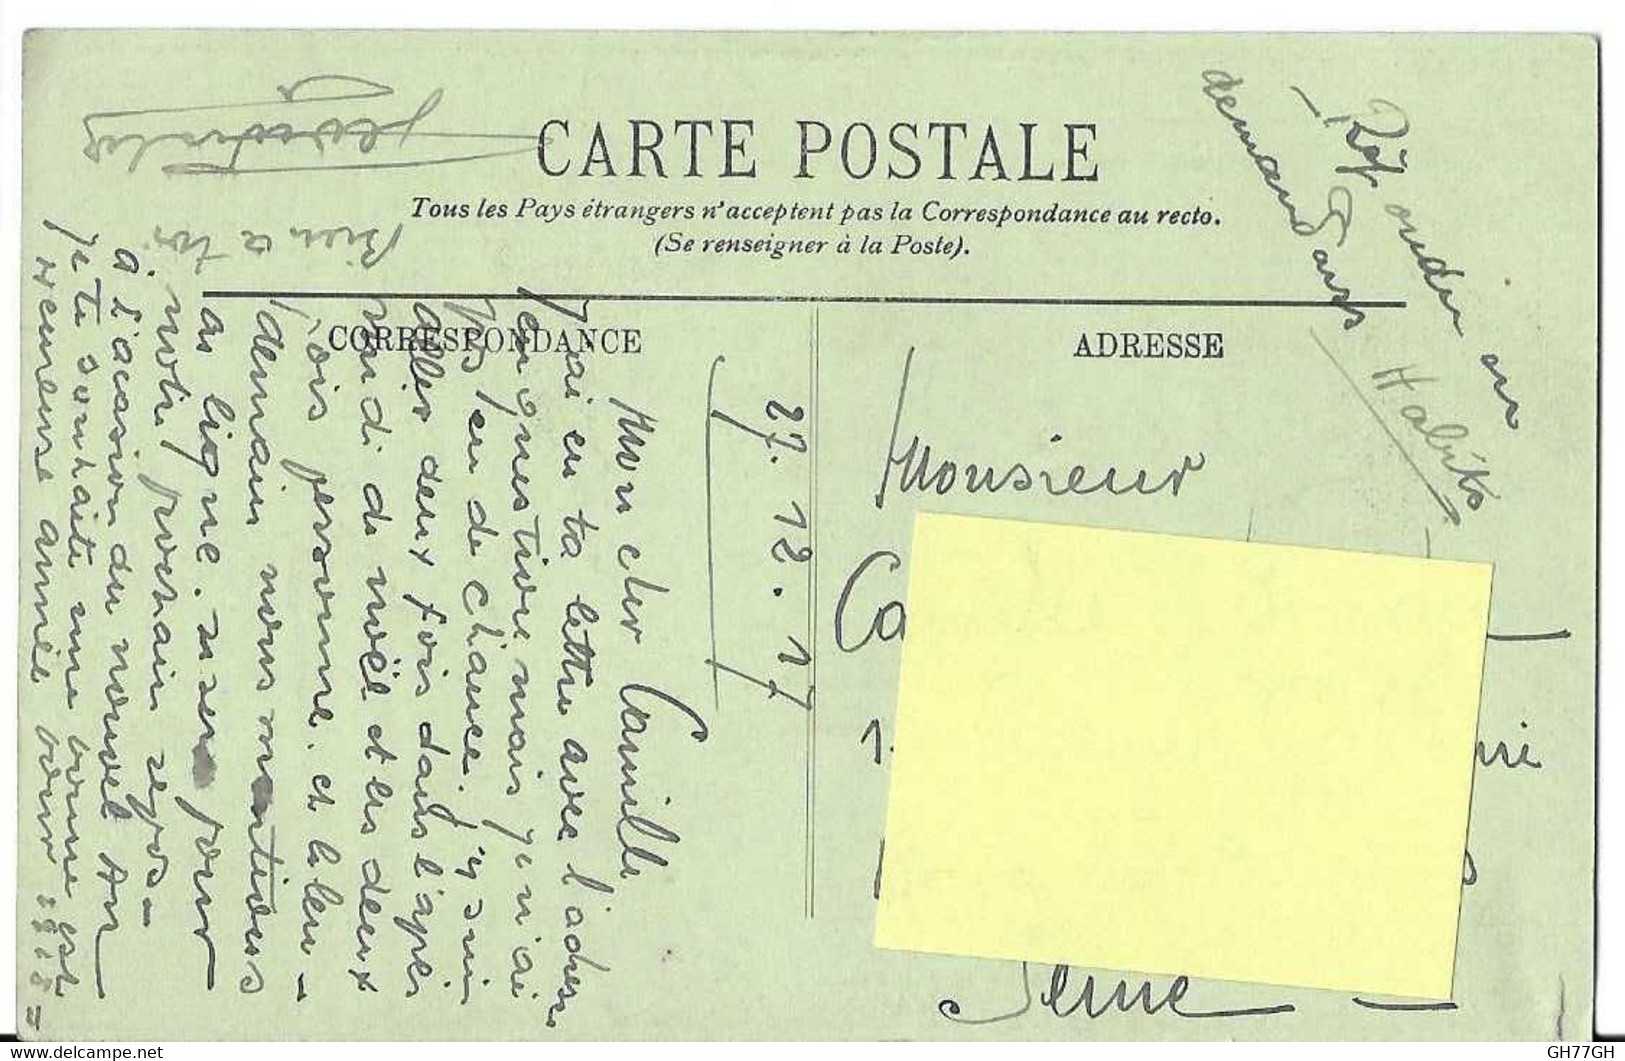 CARTE POSTALE
Tous les Pays étrangers n'acceptent pas la Correspondance au recto.
(Se renseigner à la Poste).
CORRESPONDANCE
ADRESSE
27.12.17
Mon cher Camille
J'ai eu ta lettre avec l'adresse
en question mais je n'ai
pas eu de chance. j'y suis
aller deux fois dans l'après
midi de noël et les deux
fois personne. et le len-
demain nous montions
en ligne. ce sera pour
notre prochain repos-
a l'occasion du nouvel An
je te souhaite une bonne et
heureuse année pour 1918=
Bien a toi
Monsieur
Ca
Seine
demandais
Habits
GH77GH
delcampe.net